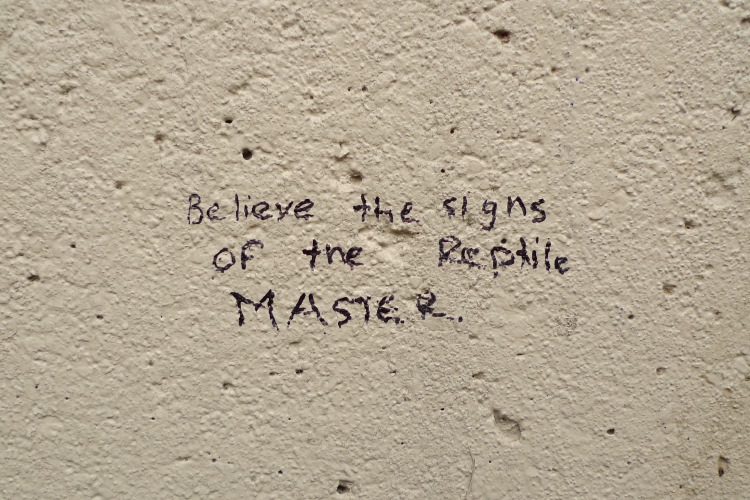 Believe the signs
of the Reptile
MASTER.